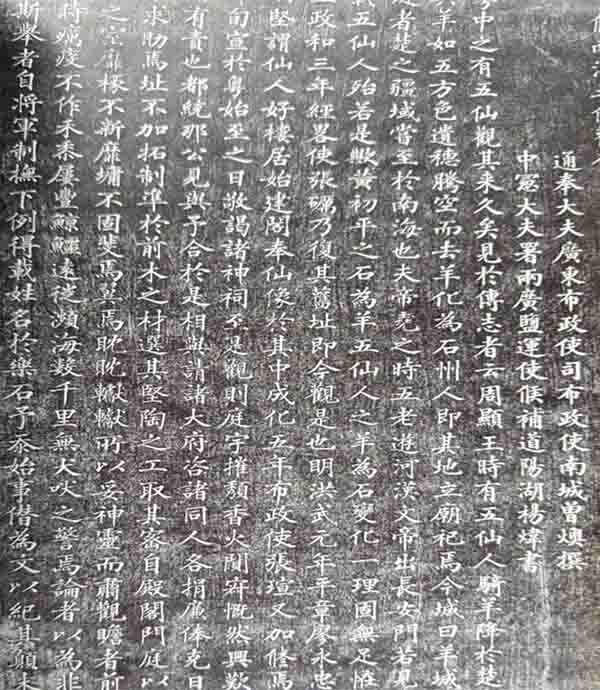 通奉大夫廣東布政使司布政使南城曾燠撰
中憲大夫署兩廣鹽運使候補道陽湖楊煒書
中之有五仙觀其来久矣見於傳志者云周顯王時有五仙人騎羊降於楚
羊如五方色遺穗騰空而去羊化為石州人即其地立廟祀焉今城曰羊城
者楚之疆域嘗至於南海也夫帝堯之時五老遊河漢文帝出長安門若見
五仙人殆若是歟黃初平之石為羊五仙人之羊為石變化一理固無足怪
政和三年經畧使張礪乃復其舊址即今觀是也明洪武元年平章廖永忠
堅謂仙人好樓居始建閣奉仙像於其中成化五年布政使張瑄又加脩焉
旬宣於粵始至之日敬謁諸神祠至是觀則庭宇摧頹香火闃寂慨然興歎
有責也都統那公見與予合於是相與請諸大府咨諸同人各捐廉俸克日
求助焉址不加拓制準於前木之材選其堅陶之工取其密自殿閣門庭以
之宗靡桷不新靡墉不固斐焉翼焉耽耽轍轍所以妥神靈而肅觀瞻者前
時癘疫不作禾黍屢豐鯨鱷遠徙瀕海數千里無犬吠之警焉論者以為非
斯舉者自將軍制撫下例得載姓名於樂石予忝始事僭為文以紀其顛末